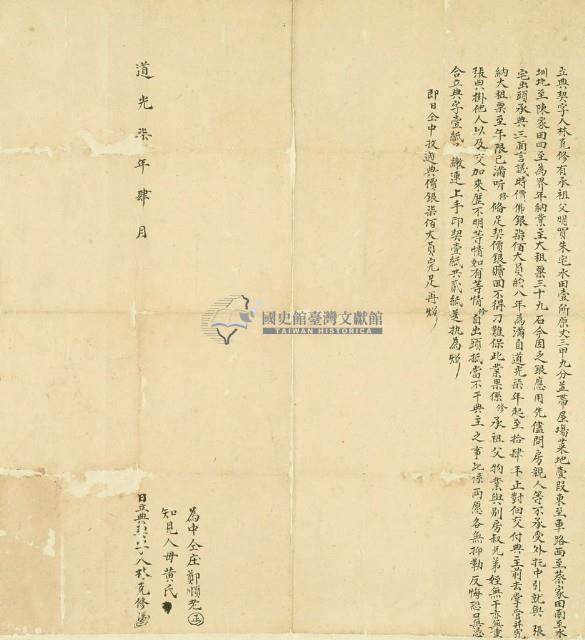 立典契字人林克修有承祖父明買朱宅水田壹所原丈三甲九分並帶屋場菜地壹段東至車路西至蔡家田南至水
圳北至陳家田四至為界年納業主大租粟三十九石今因乏銀應用先儘問房親人等不承受外托中引就與張
宅出頭承典三面言議時價佛銀柒佰大員的八年為滿自道光柒年起至拾肆年止對佃交付典主前去掌管并完
納大租粟至年限已滿听修俻足契價銀贖回不得刁難保此業果係修承祖父物業與別房叔兄弟姪無干亦無重
張典掛他人以及交加來歷不明等情如有等情修自出頭抵當不干典主之事此係两愿各無抑勒反悔恐口無憑
合立典字壹紙繳連上手印契壹紙共貳紙送执為炤
即日仝中收過典價銀柒佰大員完足再炤
道光柒年肆月
為中仝庄鄭順老
知見人母黃氏
日立典契字人林克修
國史館臺灣文獻館
TAIWAN HISTORICA